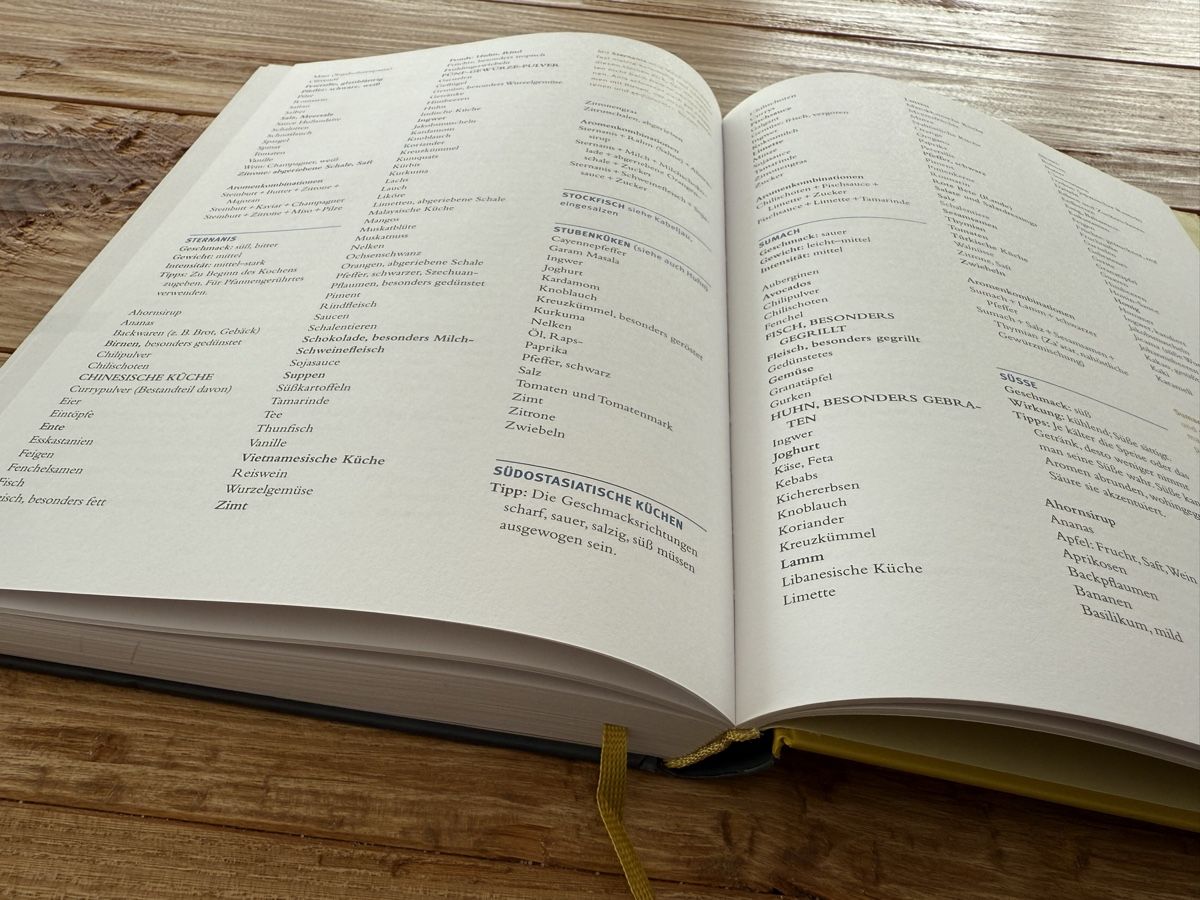 Pfeffer: schwarz, weiß
Pilze
Rosmarin
Safran
Salbei
Salz, Meersalz
Sauce Hollandaise
Schalotten
Schnittlauch
Spargel
Spinat
Tomaten
Vanille
Wein: Champagner, weiß
Zitrone: abgeriebene Schale, Saft
Aromenkombinationen
Steinbutt + Butter + Zitrone +
Majoran
Steinbutt + Kaviar + Champagner
Steinbutt + Zitrone + Miso + Pilze
STERNANIS
Geschmack: süß, bitter
Gewicht: mittel
Intensität: mittel–stark
Tipps: Zu Beginn des Kochens
zugeben. Für Pfannengerührtes
verwenden.
Ahornsirup
Ananas
Backwaren (z. B. Brot, Gebäck)
Birnen, besonders gedünstet
Chilipulver
Chilischoten
CHINESISCHE KÜCHE
Currypulver (Bestandteil davon)
Eier
Eintöpfe
Ente
Esskastanien
Feigen
Fenchelsamen
Fisch
eisch, besonders fett
FÜNF-GEWÜRZE-PULVER
Garnelen
Geflügel
Gemüse, besonders Wurzelgemüse
Getränke
Himbeeren
Huhn
Indische Küche
Ingwer
Jakobsmuscheln
Kardamom
Knoblauch
Koriander
Kreuzkümmel
Kumquats
Kürbis
Kurkuma
Lachs
Lauch
Liköre
Limetten, abgeriebene Schale
Malaysische Küche
Mangos
Muskatblüte
Muskatnuss
Nelken
Ochsenschwanz
Orangen, abgeriebene Schale
Pfeffer, schwarzer, Szechuan-
Pflaumen, besonders gedünstet
Piment
Rindfleisch
Saucen
Schalentieren
Schokolade, besonders Milch-
Schweinefleisch
Sojasauce
Suppen
Süßkartoffeln
Tamarinde
Tee
Thunfisch
Vanille
Vietnamesische Küche
Reiswein
Wurzelgemüse
Zimt
Zitronengras
Zitrusschalen, abgerieben
Aromenkombinationen
Sternanis + Rahm (Sahne) + Ahorn-
sirup
Sternanis + Milch + Milchschoko-
lade + abgeriebene Orangen-
schale + Zucker
Sternanis + Schweinefleisch + Soja-
sauce + Zucker
STOCKFISCH siehe Kabeljau,
eingesalzen
STUBENKÜKEN (siehe auch Huhn)
Cayennepfeffer
Garam Masala
Ingwer
Joghurt
Kardamom
Knoblauch
Kreuzkümmel, besonders geröstet
Kurkuma
Nelken
Öl, Raps-
Paprika
Pfeffer, schwarz
Salz
Tomaten und Tomatenmark
Zimt
Zitrone
Zwiebeln
SÜDOSTASIATISCHE KÜCHEN
Tipp: Die Geschmacksrichtungen
scharf, sauer, salzig, süß müssen
ausgewogen sein.
Chilischoten
Currys
Fischsauce
Galgant: frisch, vergoren
Ingwer
Kokosmilch
Limette
Minze
Sojasauce
Tamarinde
Zitronengras
Zucker
Aromenkombinationen
Chilischoten + Fischsauce +
Limette + Zucker
Fischsauce + Limette + Tamarinde
SUMACH
Geschmack: sauer
Gewicht: leicht–mittel
Intensität: mittel
Auberginen
Avocados
Chilipulver
Chilischoten
Fenchel
FISCH, BESONDERS
GEGRILLT
Fleisch, besonders gegrillt
Gedünstetes
Gemüse
Granatäpfel
Gurken
HUHN, BESONDERS GEBRA-
TEN
Ingwer
Joghurt
Käse, Feta
Kebabs
Kichererbsen
Knoblauch
Koriander
Kreuzkümmel
Lamm
Libanesische Küche
Limette
Oregano
Paprika
Petersilie
Pfeffer, schwarz
Pinienkerne
Rote Bete (Rande)
Salate und Salatdressings
Salz
Schalentiere
Sesamsamen
Thymian
Tomaten
Türkische Küche
Walnüsse
Zitrone, Saft
Zwiebeln
Aromenkombinationen
Sumach + Lamm + schwarzer
Pfeffer
Sumach + Salz + Sesamsamen +
Thymian (Za'atar, nahöstliche
Gewürzmischung)
SÜSSE
Geschmack: süß
Wirkung: kühlend; Süße sättigt.
Tipps: Je kälter die Speise oder das
Getränk, desto weniger nimmt
man seine Süße wahr. Süße kann
Aromen abrunden, wohingegen
Säure sie akzentuiert.
Ahornsirup
Ananas
Apfel: Frucht, Saft, Wein
Aprikosen
Backpflaumen
Bananen
Basilikum, mild
Honig
Ingwer
Kakao
Kalb
Karamell